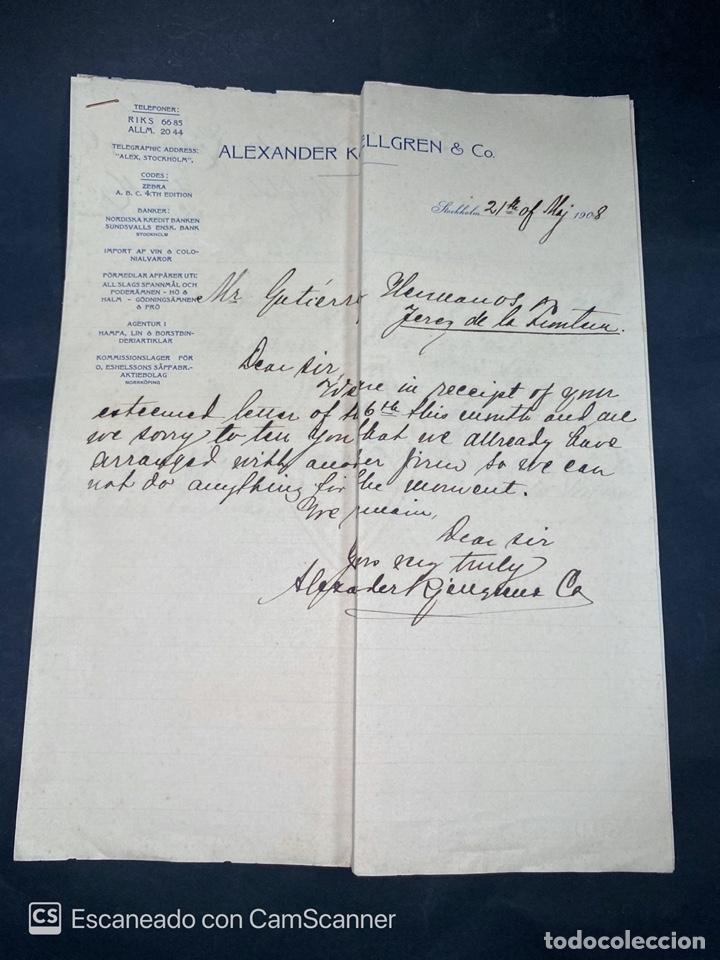 TELEFONER:
RIKS 66 85
ALLM. 20 44
TELEGRAPHIC ADDRESS:
"ALEX, STOCKHOLM",
CODES:
ZEBRA
A. B. C. 4:TH EDITION
BANKER:
NORDISKA KREDIT BANKEN
SUNDSVALLS ENSK. BANK
STOCKHOLM
IMPORT AF VIN & COLO-
NIALVAROR
FÖRMEDLAR AFFÄRER UTI:
ALL SLAGS SPANNMÅL OCH
FODERÄMNEN - HÖ &
HALM - GÖDNINGSÄMNEN
& FRÖ
AGENTUR I
HAMPA, LIN & BORSTBIN-
DERIARTIKLAR
KOMMISSIONSLAGER FÖR
O. ESHELSSONS SÅPFABR.-
AKTIEBOLAG
NORRKÖPING
ALEXANDER K ELLGREN & Co.
Stockholm 21th of Maj 1908
Mr Gutiérr Hermanos
Jerez de la Frontera.
Dear sir,
We are in receipt of your
esteemed letter of the 6th this month and are
we sorry to tell you that we allready have
arranged with another firm so we can
not do anything for the moment.
We remain,
Dear sir
Yours very truly
Alexander Kjellgren & Co
CS Escaneado con CamScanner
todocoleccion